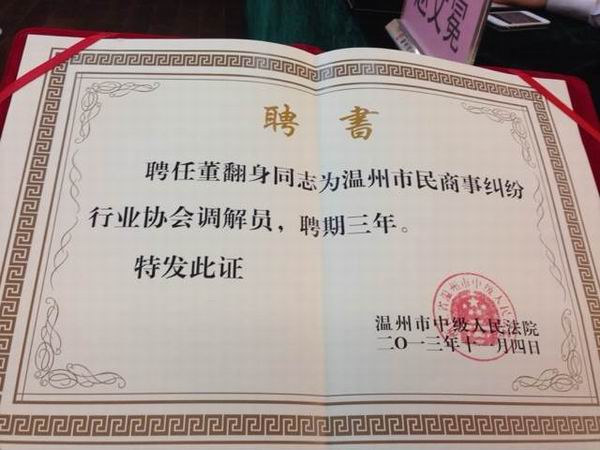 聘書
聘任董翻身同志为温州市民商事纠纷
行业协会调解员，聘期三年。
特发此证
温州市中级人民法院
二〇一三年十一月四日